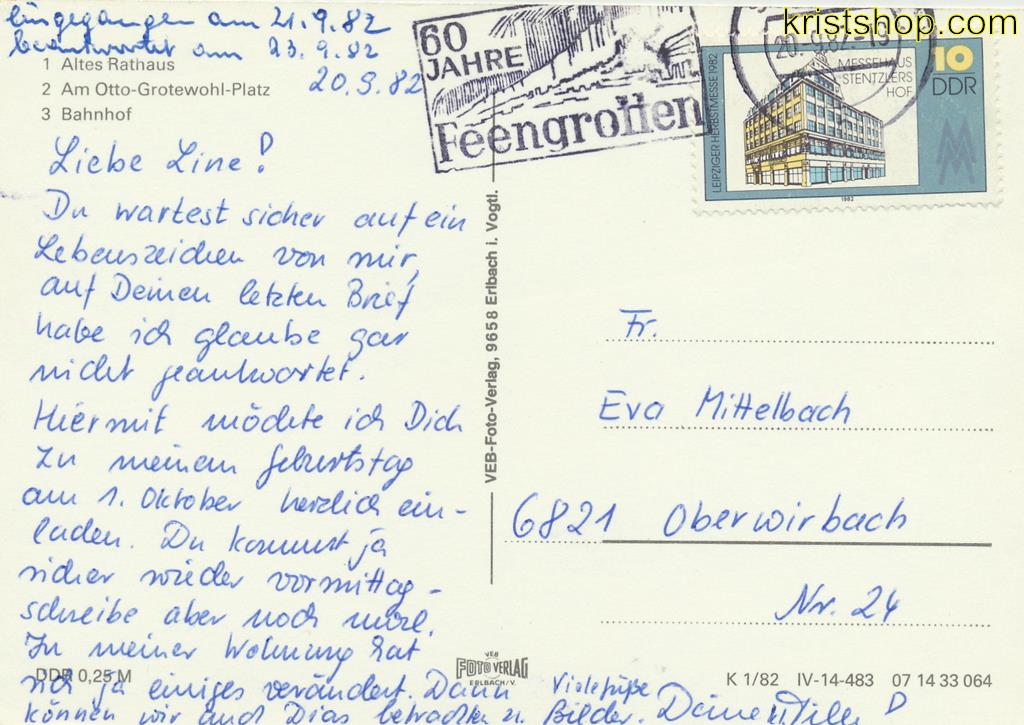 kristshop.com
eingegangen am 21.9.82
beantwortet am 23.9.82
1 Altes Rathaus
2 Am Otto-Grotewohl-Platz
3 Bahnhof
20.9.82
60
JAHRE
Feengrotten
20.-9.82.-
LEIPZIGER HERBSTMESSE 1982
MESSEHAUS
STENTZLERS
HOF
10
DDR
MM
1982
Liebe Line!
Du wartest sicher auf ein
Lebenszeichen von mir,
auf Deinen letzten Brief
habe ich glaube gar
nicht geantwortet.
Hiermit möchte ich Dich
zu meinem Geburtstag
am 1. Oktober herzlich ein-
laden. Du kommst ja
sicher wieder vormittag -
schreibe aber noch mal.
In meiner Wohnung hat
sich ja einiges verändert. Dann
können wir auch Dias betrachten u. Bilder.
Viele Grüße
Deine
VEB-Foto-Verlag, 9658 Erlbach i. Vogtl.
Fr.
Eva Mittelbach
6821 Oberwirbach
Nr. 24
DDR 0,25 M
VEB
FOTO VERLAG
ERLBACH/V.
K 1/82 IV-14-483 07 14 33 064